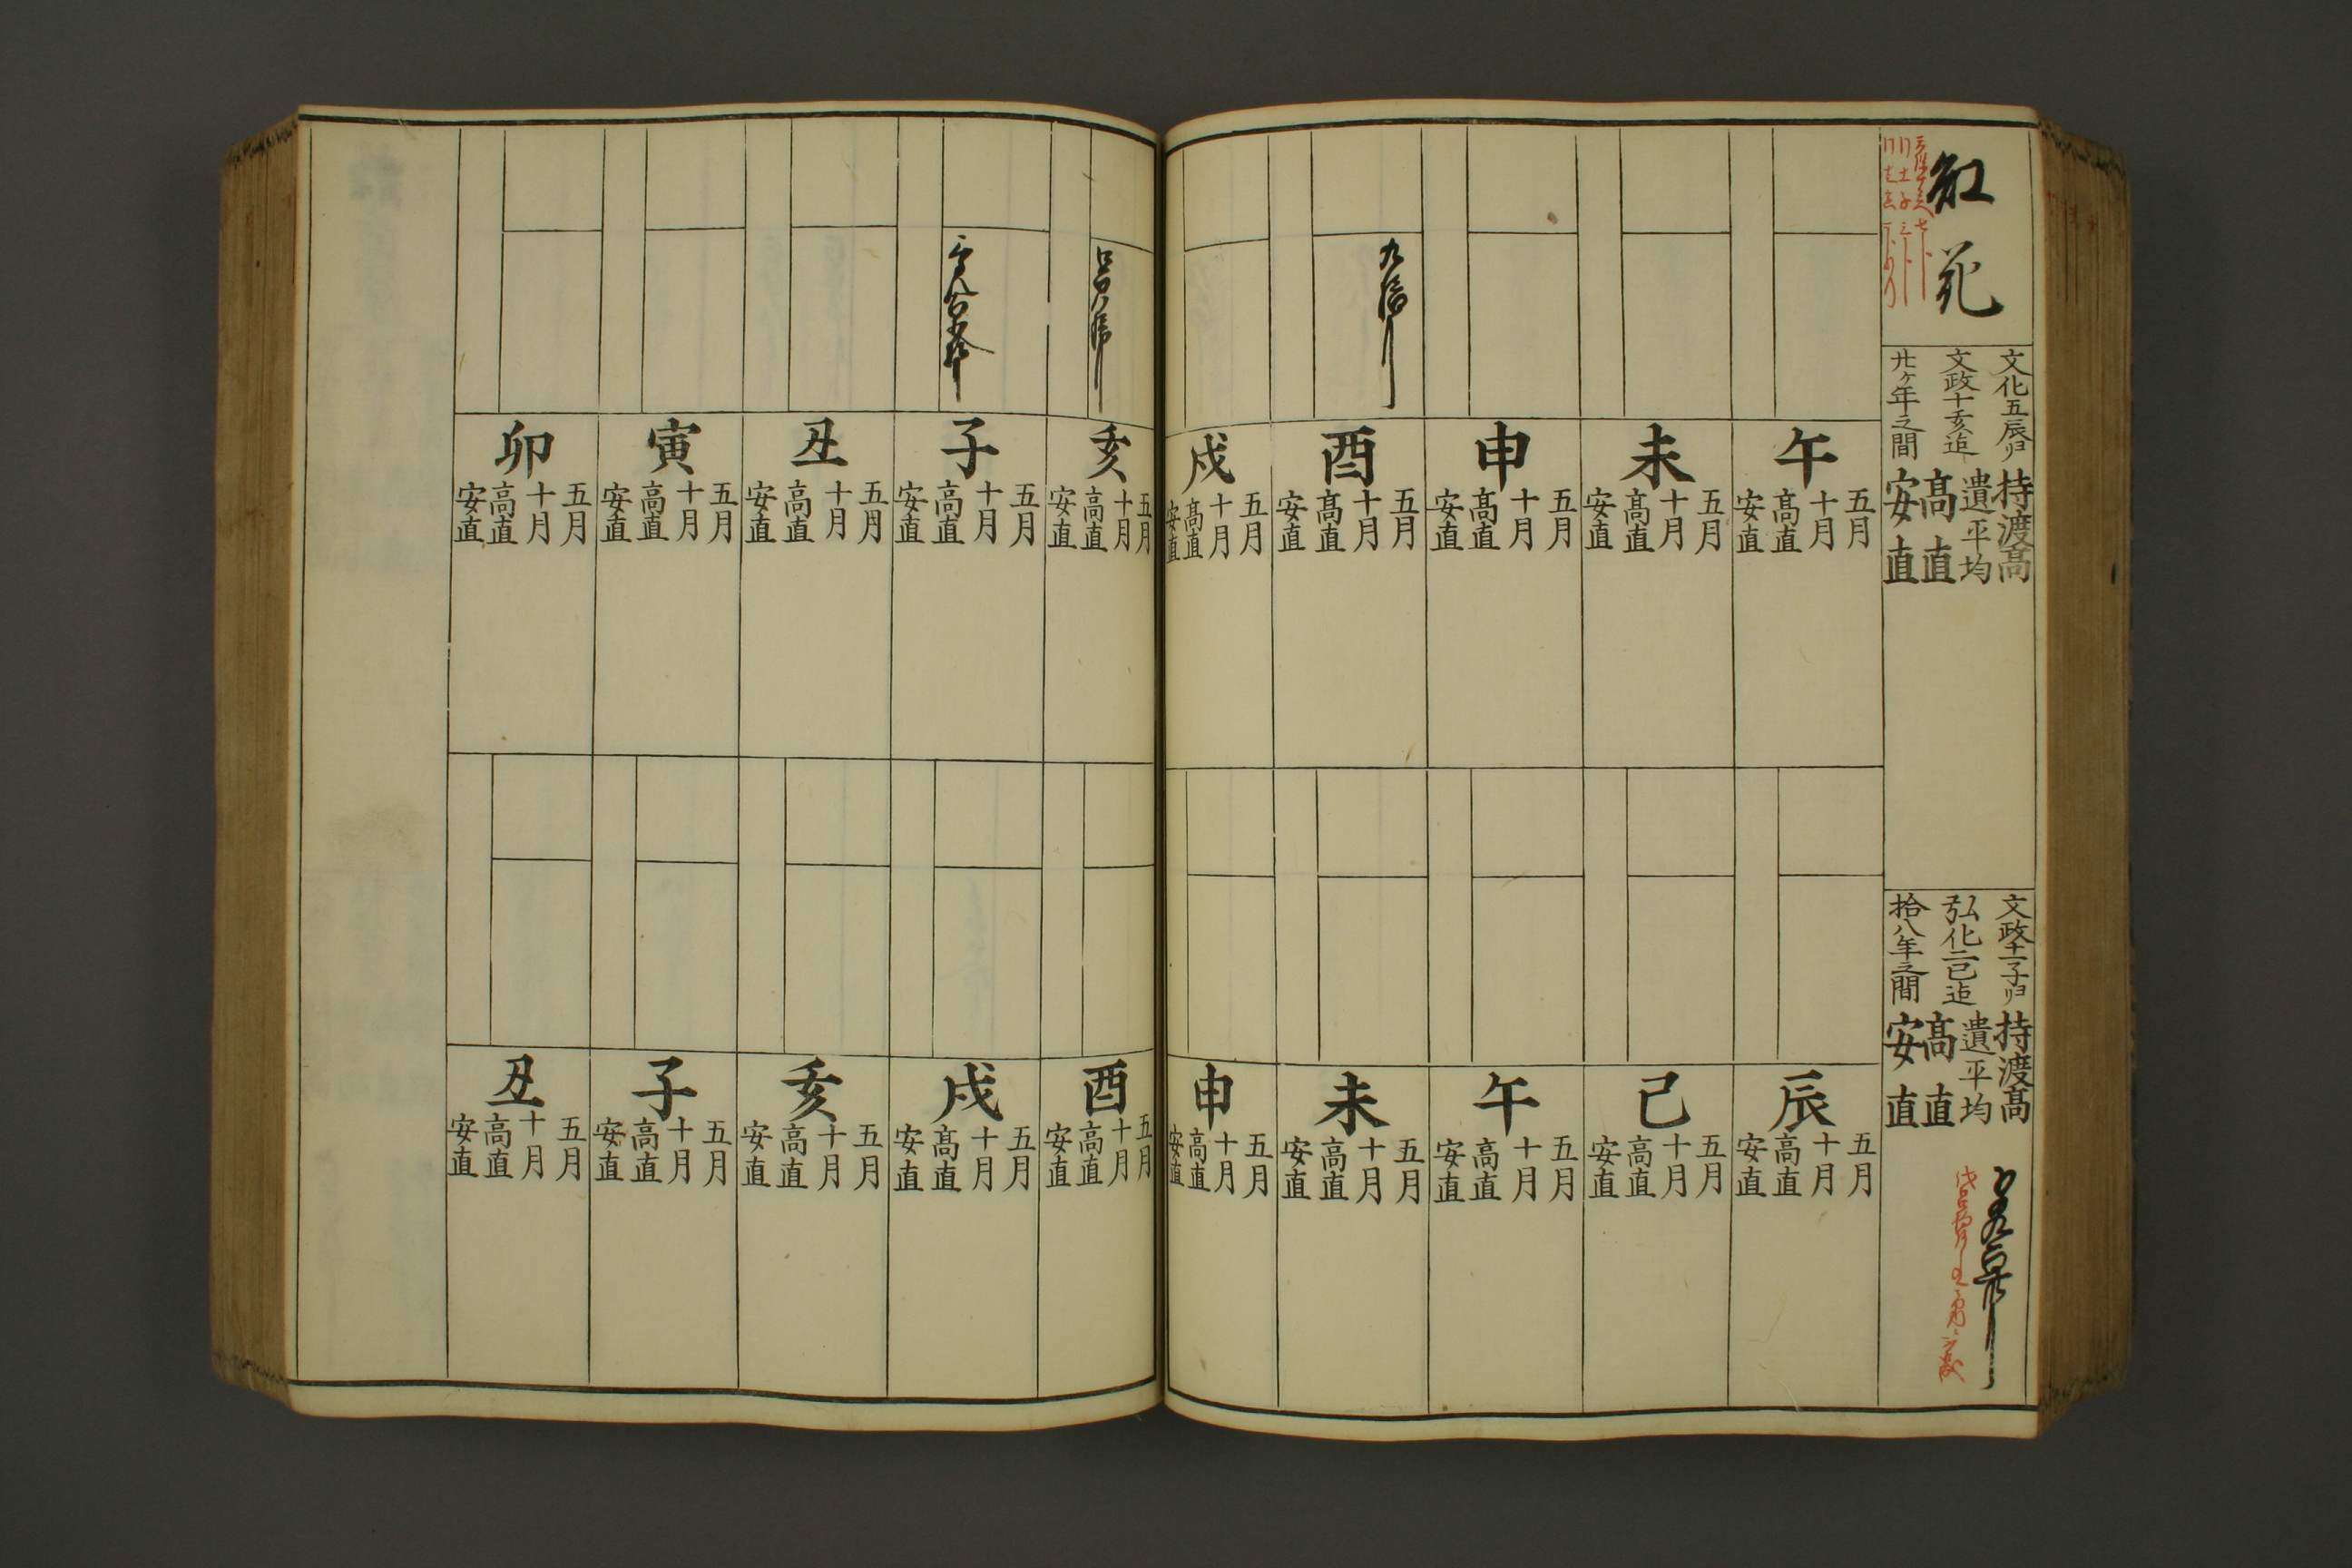 紅花
文化五辰ヨリ
文政十亥迠
廾ヶ年之間
持渡高
遺平均
高直
安直
文政十一子ヨリ
弘化二巳迠
拾八年之間
持渡高
遺平均
高直
安直
午
五月
十月
高直
安直
未
五月
十月
高直
安直
申
五月
十月
高直
安直
酉
五月
十月
高直
安直
戌
五月
十月
高直
安直
亥
五月
十月
高直
安直
子
五月
十月
高直
安直
丑
五月
十月
高直
安直
寅
五月
十月
高直
安直
卯
五月
十月
高直
安直
辰
五月
十月
高直
安直
巳
五月
十月
高直
安直
午
五月
十月
高直
安直
未
五月
十月
高直
安直
申
五月
十月
高直
安直
酉
五月
十月
高直
安直
戌
五月
十月
高直
安直
亥
五月
十月
高直
安直
子
五月
十月
高直
安直
丑
五月
十月
高直
安直